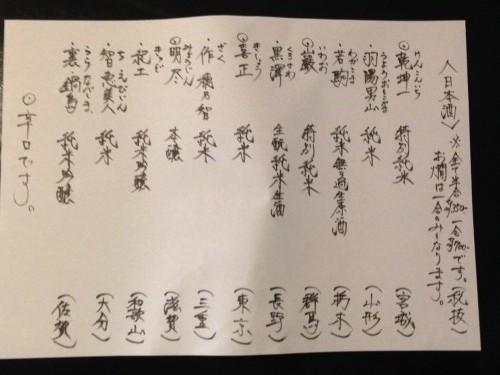 〈日本酒〉 ※全て半合¥350- 一合¥700-です。(税抜)
お燗は一合のみとなります。
けんこんいち
◎乾坤一 特別純米 (宮城)
うようおとこやま
・羽陽男山 純米 (山形)
わかこま
・若駒 純米無ろ過生原酒 (栃木)
いわお
◎巖 特別純米 (群馬)
くろさわ
・黒澤 生酛純米生酒 (長野)
きしょう
◎喜正 純米 (東京)
ざく
・作 穂乃智 純米 (三重)
◎明尽 本醸 (滋賀)
・紀土 純米吟醸 (和歌山)
ちえびじん
・智恵美人 純米 (大分)
うらなべしま
・裏鍋島 純米吟醸 (佐賀)
◎辛口です。